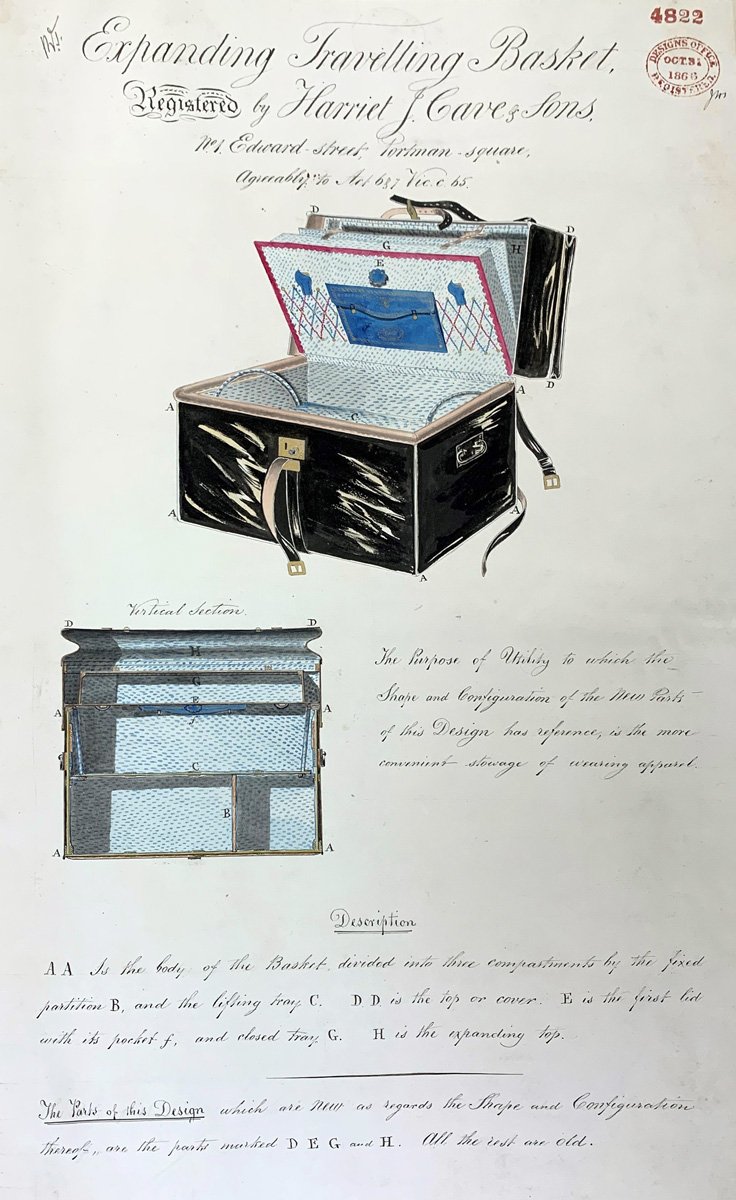 4822
DESIGNS OFFICE
OCT. 31
1866
REGISTERED
Expanding Travelling Basket,
Registered by Harriet J. Cave & Sons,
No. 1, Edward-street, Portman-square,
Agreeably to Act 6 & 7 Vic. c. 65.
D
D
G
H
E
f
D
A
A
C
A
A
A
Vertical Section.
D D
H
G
E
A A
f
C
B
A A
The Purpose of Utility to which the
Shape and Configuration of the New Parts
of this Design has reference, is the more
convenient stowage of wearing apparel.
Description
A A Is the body of the Basket, divided into three compartments by the fixed
partition B, and the lifting tray C. D D is the top or cover. E is the first lid
with its pocket f, and closed tray G. H is the expanding top.
The Parts of this Design which are New as regards the Shape and Configuration
thereof, are the parts marked D E G and H. All the rest are old.